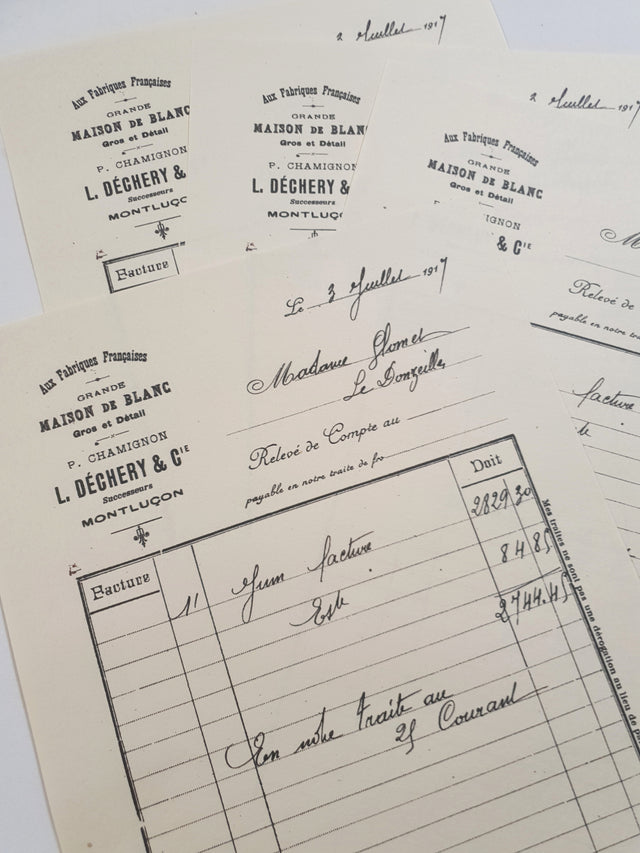 2 Juillet 1917
Aux Fabriques Françaises
GRANDE
MAISON DE BLANC
Gros et Détail
P. CHAMIGNON
L. DÉCHERY &
Successeurs
MONTLUÇO
Facture
Aux Fabriques Françaises
GRANDE
MAISON DE BLAN
Gros et Détail
P. CHAMIGNON
L. DÉCHERY &
Successeurs
MONTLUÇ
2 Juillet 1917
Aux Fabriques Françaises
GRANDE
MAISON DE BLANC
Gros et Détail
IGNON
& CIE
M
Relevé de
payable en notre tra
facture
Le 3 Juillet 1917
Madame Glomet
Le Donjeille
Aux Fabriques Françaises
GRANDE
MAISON DE BLANC
Gros et Détail
P. CHAMIGNON
L. DÉCHERY & CIE
Successeurs
MONTLUÇON
Relevé de Compte au
payable en notre traite de frs
Facture
Doit
1r Juin facture 2829 30
Esb 84 85
2744.45
En notre traite au
25 Courant
Mes traites ne sont pas une dérogation au lieu de pa